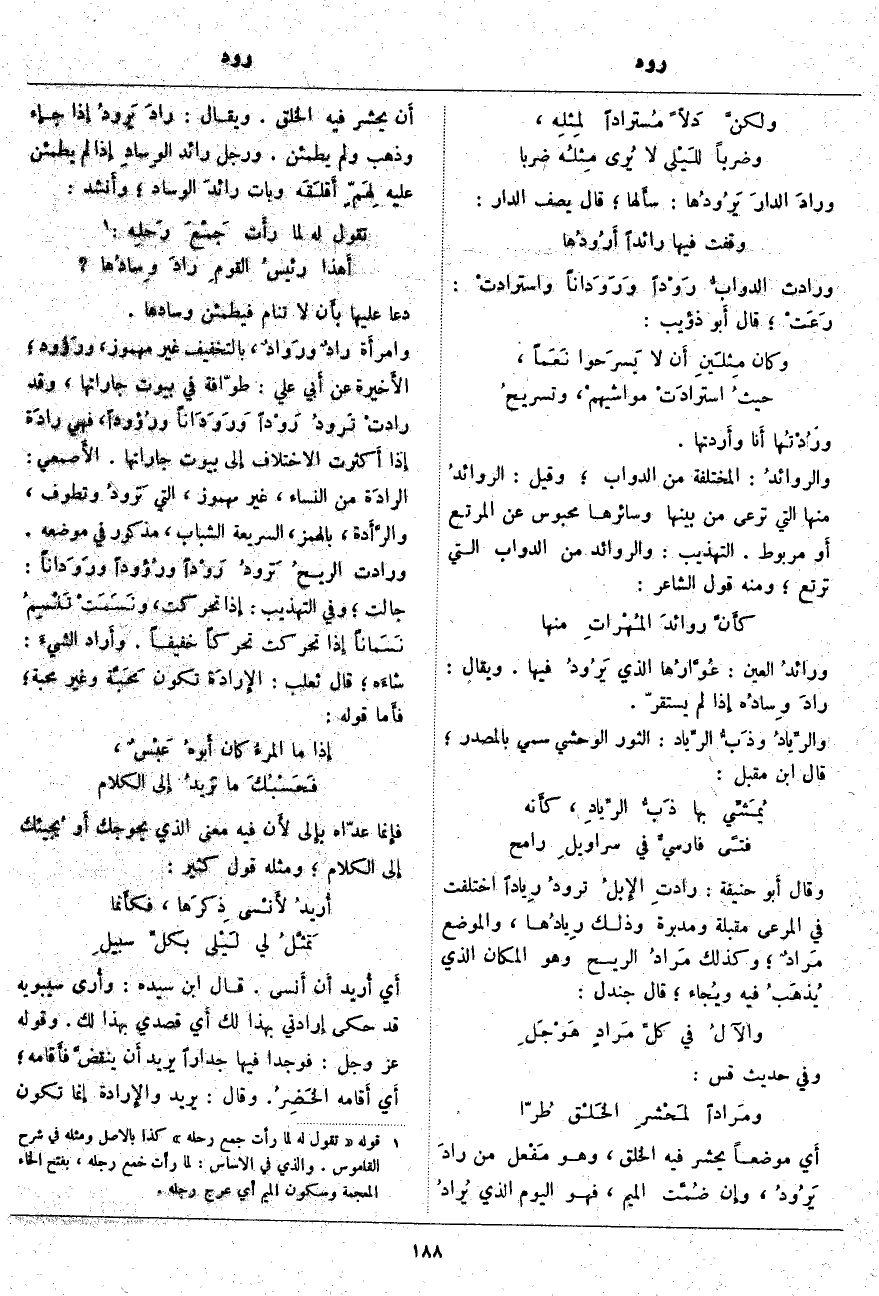 رود
رود
ولكنَّ دَلاًّ مُستراداً لمِثلِه ،
وضرباً للَيْلى لا يُرى مِثلُه ضربا
ورادَ الدارَ يَرُودُها : سألها ؛ قال يصف الدار :
وقفت فيها رائداً أَرُودُها
ورادت الدوابُّ رَوْداً ورَوَداناً واسترادتْ :
رَعَتْ ؛ قال أبو ذؤيب :
وكان مِثلَينِ أن لا يَسرَحوا نَعَماً ،
حيثُ استرادَتْ مواشيهمْ ، وتسريحُ
ورُدْتُها أنا وأردتها .
والروائدُ : المختلفة من الدواب ؛ وقيل : الروائدُ
منها التي ترعى من بينها وسائرها محبوس عن المرتع
أو مربوط . التهذيب : والروائد من الدواب التي
ترتع ؛ ومنه قول الشاعر :
كأنَّ روائدَ المُهْراتِ منها
ورائدُ العين : عُوَّارُها الذي يَرُودُ فيها . ويقال :
رادَ وِسادُه إذا لم يستقرّ .
والرِّيادُ وذَبُّ الرِّياد : الثور الوحشي سمي بالمصدر ؛
قال ابن مقبل :
يُمَشّي بها ذَبُّ الرِّيادِ ، كأنه
فتًى فارسيٌّ في سراويلِ رامح
وقال أبو حنيفة : رادتِ الإبلُ ترودُ رِياداً اختلفت
في المرعى مقبلة ومدبرة وذلك رِيادُها ، والموضع
مَرادٌ ؛ وكذلك مَرادُ الريح وهو المكان الذي
يُذهَبُ فيه ويُجاء ؛ قال جندل :
والآلُ في كلِّ مَرادٍ هَوْجَلِ
وفي حديث قس :
ومَراداً لمَحْشرِ الخَلْق طُرّا
أي موضعاً يحشر فيه الخلق ، وهو مَفْعل من رادَ
يَرُودُ ، وإن ضُمَّت الميم ، فهو اليوم الذي يُرادُ
أن يحشر فيه الخلق . ويقال : رادَ يَرودُ إذا جاء
وذهب ولم يطمئن . ورجل رائد الوِسادِ إذا لم يطمئن
عليه لِهَمٍّ أَقلَقَه وبات رائدَ الوساد ؛ وأنشد :
تقول له لما رأت جَمْعَ رَحلِه :١
أَهذا رئيسُ القومِ رادَ وِسادُها ؟
دعا عليها بأن لا تنام فيطمئن وسادها .
وامرأة رادٌ ورَوادٌ ، بالتخفيف غير مهموز ، ورَؤود ؛
الأخيرة عن أبي علي : طوّافة في بيوت جاراتها ، وقد
رادتْ تَرودُ رَوْداً ورَوَدَاناً ورُؤوداً ، فهي رادَة
إذا أكثرت الاختلاف إلى بيوت جاراتها . الأصمعي :
الرادَة من النساء ، غير مهموز ، التي تَرودُ وتطوف ،
والرَّأدة ، بالهمز ، السريعة الشباب ، مذكور في موضعه .
ورادت الريحُ تَرودُ رَوْداً ورُؤوداً ورَوَداناً :
جالت ؛ وفي التهذيب : إذا تحركت ، ونَسَمَتْ تَنْسِمُ
نَسَماناً إذا تحركت تحركاً خفيفاً . وأراد الشيءَ :
شاءَه ؛ قال ثعلب : الإرادَة تكون مَحَبَّة وغير محبة ؛
فأما قوله :
إذا ما المرءُ كان أبوهُ عَبْسٌ ،
فحَسْبُكَ ما تزيدُ إلى الكلام
فإنما عدّاه بإلى لأن فيه معنى الذي يحوجك أو يُجيئك
إلى الكلام ؛ ومثله قول كثير :
أُريدُ لأَنْسى ذِكرَها ، فكأنما
تَمثَّلُ لي لَيْلى بكلِّ سبيلِ
أي أُريد أن أنسى . قال ابن سيده : وأرى سيبويه
قد حكى إرادتي بهذا لك أي قصدي بهذا لك . وقوله
عز وجل : فوجدا فيها جداراً يريد أن ينقضَّ فأقامه ؛
أي أقامه الخَضِرُ . وقال : يريد والإرادة إنما تكون
١ قوله « تقول له لما رأت جمع رحله » كذا بالاصل ومثله في شرح
القاموس . والذي في الاساس : لما رأت خمع رجله ، بفتح الخاء
المعجمة وسكون الميم أي عرج رجله .
١٨٨